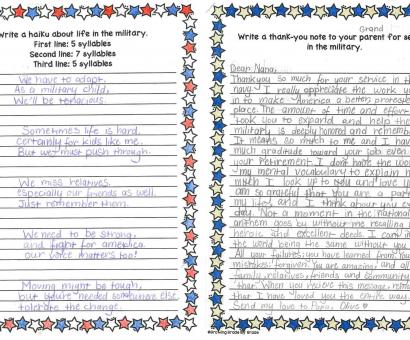 Write a haiku about life in the military.
First line: 5 syllables
Second line: 7 syllables
Third line: 5 syllables
We have to adapt.
As a military child,
We'll be tenacious.
Sometimes life is hard,
Certainly for kids like me.
But we must push through.
We miss relatives.
Especially our friends as well.
Just remember them.
We need to be strong,
and fight for america.
our voice matters too!
Moving might be tough,
but you're needed somewhere else,
tolerate the change.
Grand
Write a thank-you note to your parent for se
in the military.
Dear Nana,
Thank you so much for your service in t
navy. I really appreciate the work yo
in to make America a better protecte
place. The amount of time and effort
took you to expand and help the
military is deeply honored and rememb
It means so much to me and I hav
much gratitude toward your job even
your retirement. I don't have the wor
my mental vocabulary to explain h
much I look up to you and love yo
am so grateful that you are a part
my life, and I think about you eve
day. Not a moment in the national
anthem goes by without me recalling
heroic and excellent deeds. I can't im
the world being the same without yo
All your failures; you have learned from. You
mistakes; forgiven. You are amazing, and al
family, relatives, friends and community
that. When you recieve this message, re
that I have loved you the entire way.
Send my love to Papa, Olive